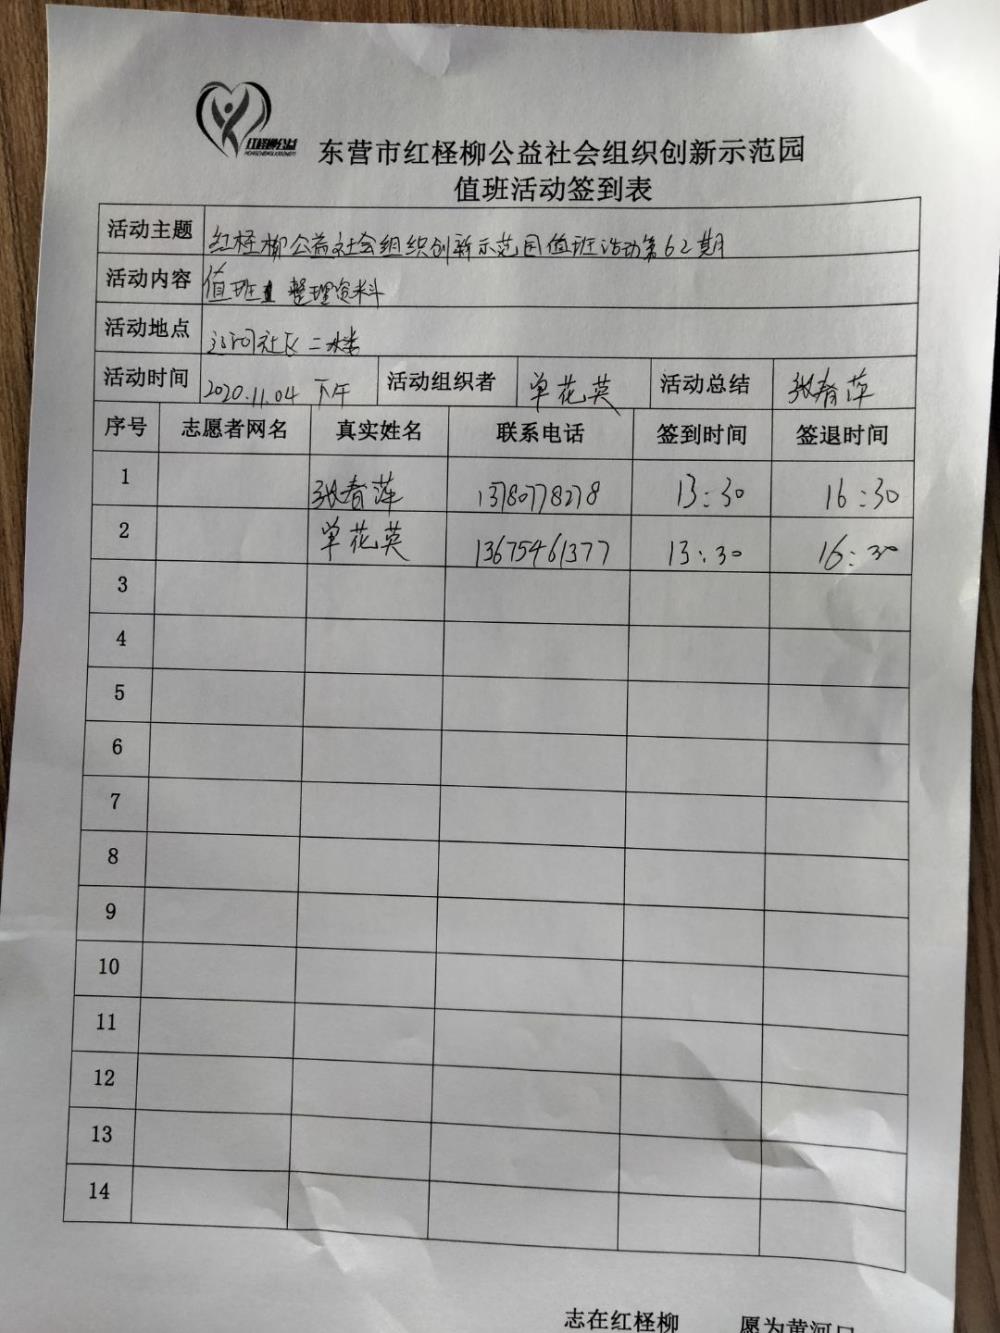 红柽柳公益
东营市红柽柳公益社会组织创新示范园
值班活动签到表
活动主题 红柽柳公益社会组织创新示范园值班活动第62期
活动内容 值班 整理资料
活动地点 辽河社区二楼
活动时间 2020.11.04 下午 活动组织者 单花英 活动总结 张春萍
序号 志愿者网名 真实姓名 联系电话 签到时间 签退时间
1 张春萍 13780778278 13:30 16:30
2 单花英 13675461377 13:30 16:30
3
4
5
6
7
8
9
10
11
12
13
14
志在红柽柳 愿为黄河口